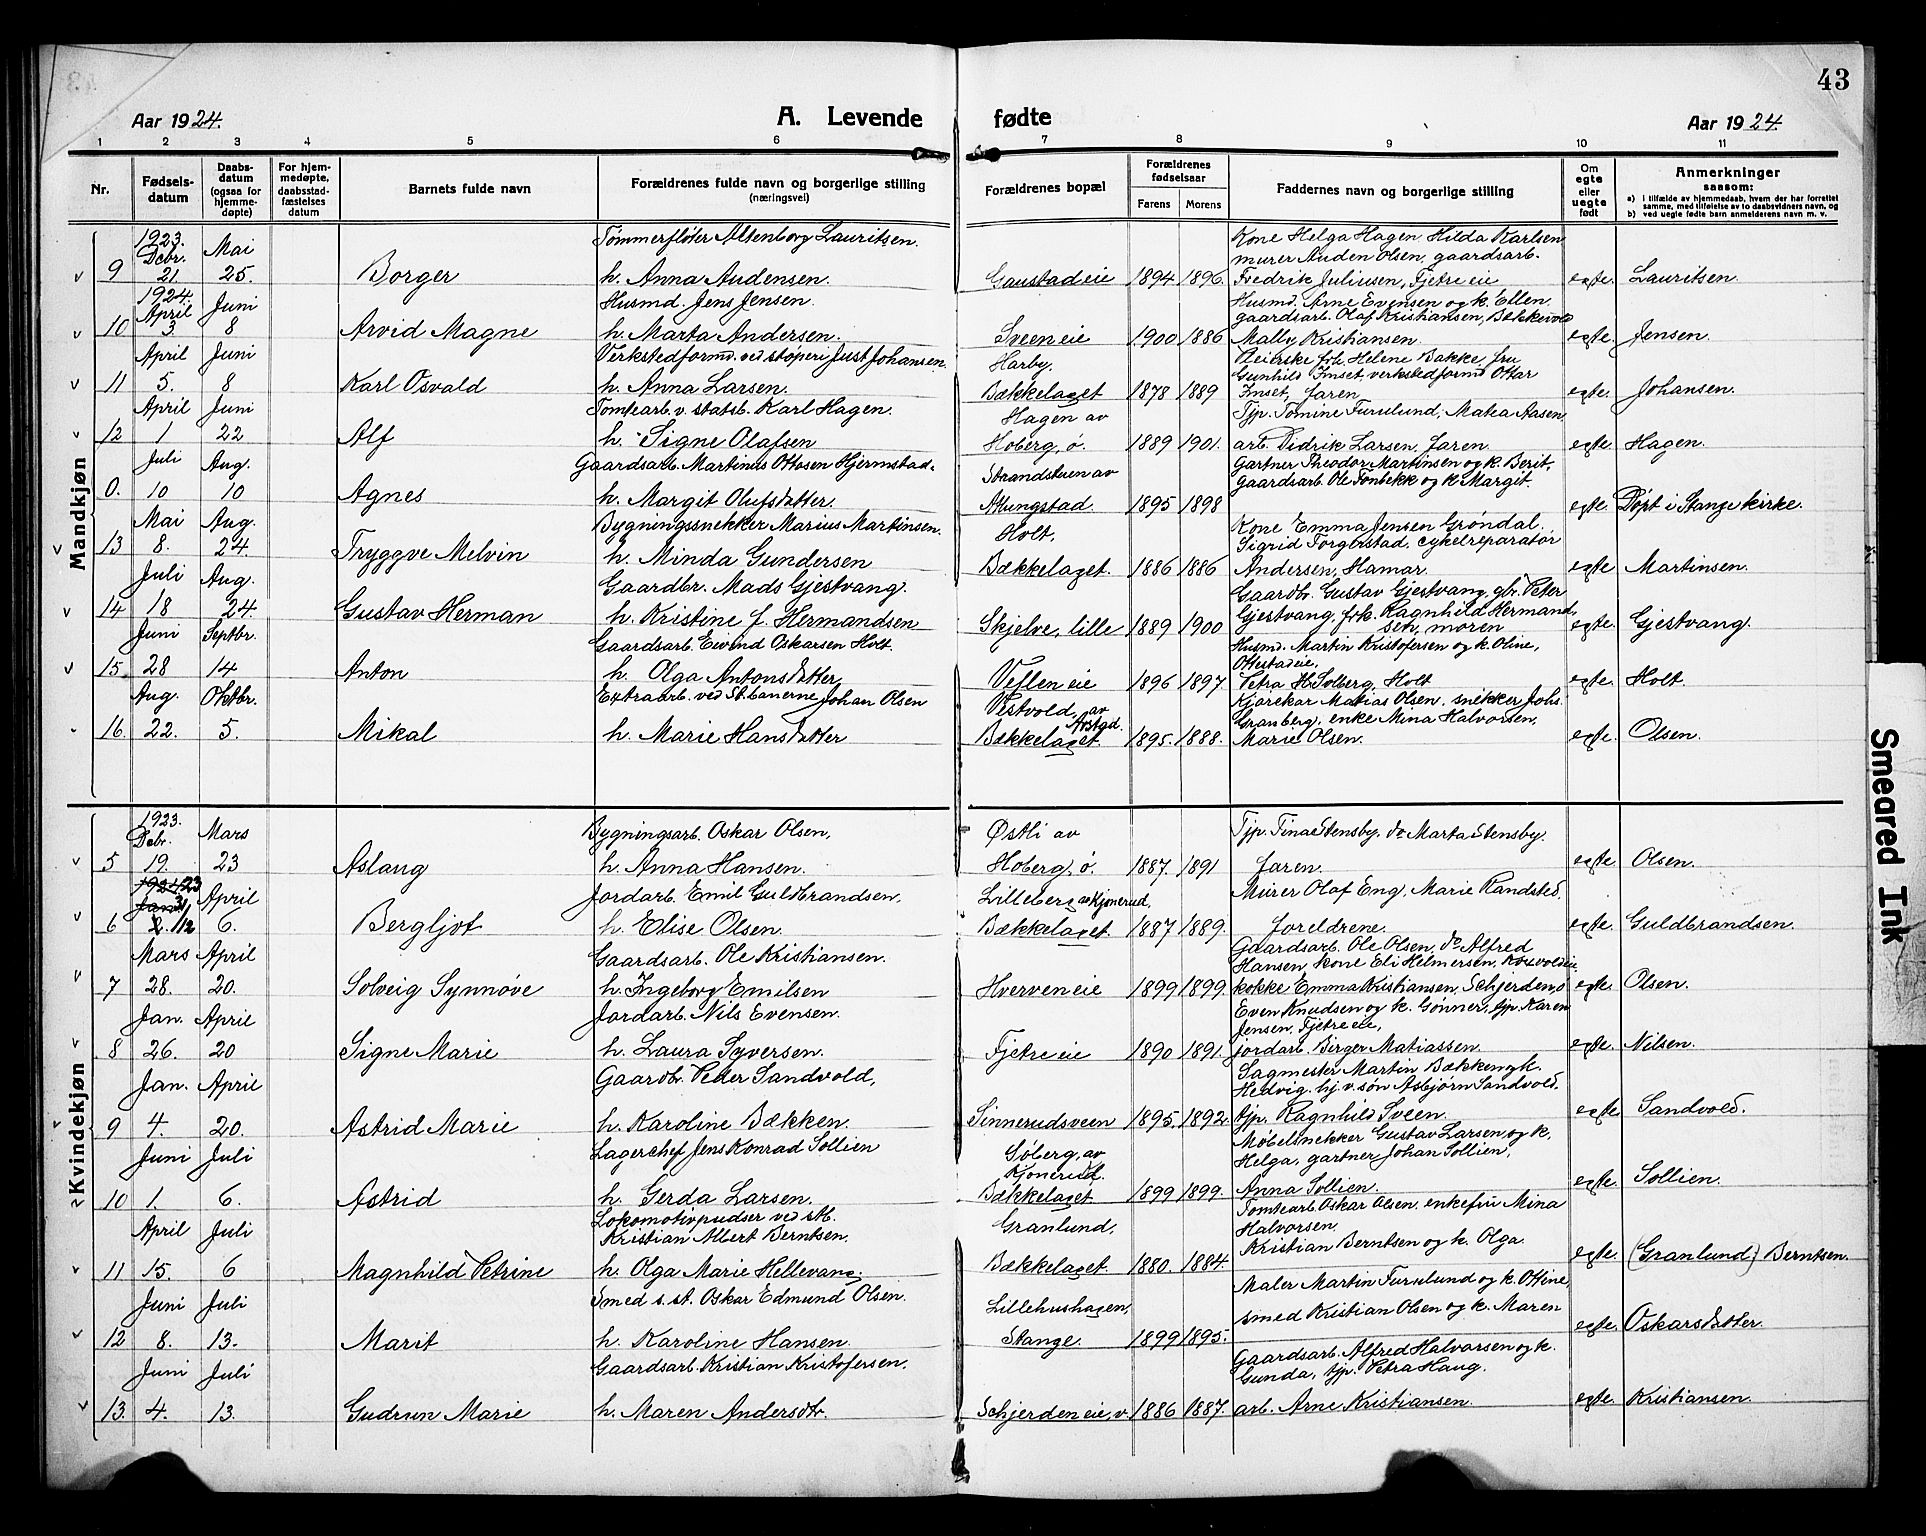 43
Aar 1924.
A. Levende fødte
Aar 1924.
1 2 3 4 5 6 7 8 9 10 11
Nr.
Fødsels-datum
Daabs-datum (ogsaa for hjemme-døpte)
For hjem-medøpte, daabsstad-fæstelses datum
Barnets fulde navn
Forældrenes fulde navn og borgerlige stilling (næringsvei)
Forældrenes bopæl
Forældrenes fødselsaar
Farens Morens
Faddernes navn og borgerlige stilling
Om egte eller uegte født
Anmerkninger saasom:
a) i tilfælde av hjemmedaab, hvem der har forrettet samme, med tilføielse av to daabsvidners navn, og
b) ved uegte fødte barn anmelderens navn m. v.
Mandkjøn
1923. Mai Tømmerfløter Altenborg Lauritsen. Kone Helga Hagen, Hilda Karlsen
Debr. murer Auden Olsen, gaardsarb.
9 21. 25. Borger h. Anna Audensen. Gaustadeie 1894 1896. Fredrik Juliusen, Fjetre eie egte. Lauritsen.
1924. April Juni Husmd. Jens Jensen. Husmd. Arne Evensen og k. Ellen.
gaardsarb. Olaf Kristiansen, Bækkevold
10 3. 8 Arvid Magne h. Marta Andersen. Sveen eie 1900 1886 Mally Kristiansen. egte. Jensen.
April Juni Verkstedformd. ved støperi Just Johansen. Harby, frk. Helene Bakke, fru
Gunhild Imset, verkstedformd Ottar
11 5. 8 Karl Osvald h. Anna Larsen. Bækkelaget 1878 1889 Imset, faren egte. Johansen.
April Juni Tomtearb. v. statsb. Karl Hagen. Hagen av Tjp. Tomine Furulund, Matea Aasen
12 1 22 Alf h. Signe Olafsen Hoberg, ø. 1889 1901. arb. Didrik Larsen, faren. egte. Hagen.
Juli Aug. Gaardsarb. Martinus Ottosen Hjermstad. Strandstuen av Gartner Theodor Martinsen og k. Berit,
gaardsarb. Ole Fonbekk og k Margit.
0. 10 10 Agnes h. Margit Olufsdatter. Atlungstad. 1895 1898 egte. Døpt i Stange kirke.
Mai Aug. Bygningssnekker Marius Martinsen. Holt, Kone Emma Jensen Grøndal.
Sigrid Torgerstad, cykelreparatør
13 8. 24 Tryggve Melvin h. Minda Gundersen Bækkelaget. 1886 1886 Andersen, Hamar. egte Martinsen.
Juli Aug. Gaardbr. Mads Gjestvang. Gaardbr. Gustav Gjestvang, gbr. Peter
14 18 24. Gustav Herman h. Kristine f. Hermandsen Skjelve, lille 1889 1900 Gjestvang, frk. Ragnhild Hermand-sen, moren egte. Gjestvang.
Juni Septbr. Gaardsarb. Eivind Oskarsen Holt. Husmd. Martin Kristofersen og k. Oline,
Ottestadeie,
15 28 14 Anton h. Olga Antonsdatter Veflen eie 1896 1897 Petra H. Solberg, Holt egte. Holt.
Aug. Oktbr. Extraarb. ved St. banerne Johan Olsen Vestvold, av Arstad. Kjørekar Matias Olsen, snikker Johs.
Granberg, enke Mina Halvorsen,
16. 22. 5. Mikal h. Marie Hansdatter Bækkelaget. 1895. 1888. Marie Olsen. egte. Olsen.
Kvindekjøn
1923. Debr. Mars Bygningsarb. Oskar Olsen, Østli av Tjp. Tina Stensby, do Marta Stensby.
5 19. 23 Aslaug h. Anna Hansen. Hoberg, ø. 1887. 1891 faren. egte Olsen.
1924. 23 Jan. 31/12 April Jordarb. Emil Guldbrandsen. Lilleberg av Kjonerud, Murer Olaf Eng, Marie Randsted,
6 2. 6. Bergljot h. Elise Olsen. Bækkelaget. 1887 1889. foreldrene. egte Guldbrandsen.
Mars April Gaardsarb. Ole Kristiansen. Gaardsarb. Ole Olsen, do Alfred
Hansen, kone Eli Helmersen,
7 28. 20. Solveig Synnøve h. Ingeborg Emilsen Hverven eie 1899 1899 kokke Emma Kristiansen, Schjerden, ø egte. Olsen.
Jan. April Jordarb. Nils Evensen. Even Knudsen og k. Gønner, tjp. Karen
Jensen, Fjetre eie,
8 26. 20 Signe Marie h. Laura Syversen. Fjetre eie 1890 1891. jordarb. Birger Matiassen. egte Nilsen.
Jan. April Gaardbr. Peder Sandvold, Sagmester Martin Bækken og k.
Hedvig, hj. v. søn Asbjørn Sandvold.
9 4. 20. Astrid Marie h. Karoline Bækken. Sinnerudsveen 1895. 1892. tjp. Ragnhild Sveen. egte Sandvold.
Juni Juli Lagerchef Jens Konrad Sollien Søberg, av Kjonerud. Møbelsnekker Gustav Larsen og k,
Helga, gartner Johan Sollien,
10 1. 6. Astrid h. Gerda Larsen. Bækkelaget 1899 1899. Anna Sollien. egte. Sollien.
April Juli Lokomotivpudser ved stb. Granlund, Tomtearb. Oskar Olsen, enkefru Mina
Kristian Albert Berntsen. Halvorsen,
11 15. 6 Magnhild Petrine h. Olga Marie Hellevang. Bækkelaget. 1880. 1884 Kristian Berntsen og k. Olga. egte. (Granlund) Berntsen.
Juni Juli Smed s. st. Oskar Edmund Olsen. Lillehushagen, Maler Martin Furulund og k. Ottine,
smed Kristian Olsen og k. Maren
12 8. 13. Marit h. Karoline Hansen. Stange. 1899 1895. egte. Oskarsdatter.
Juni Juli Gaardsarb. Kristian Kristofersen. Gaardsarb. Alfred Halvorsen og k.
Gunda, tjp. Petra Haug.
13. 4. 13. Gudrun Marie h. Maren Andersdtr. Schjerden eie, v. 1886 1887. arb. Arne Kristiansen. egte. Kristiansen.
Smeared Ink